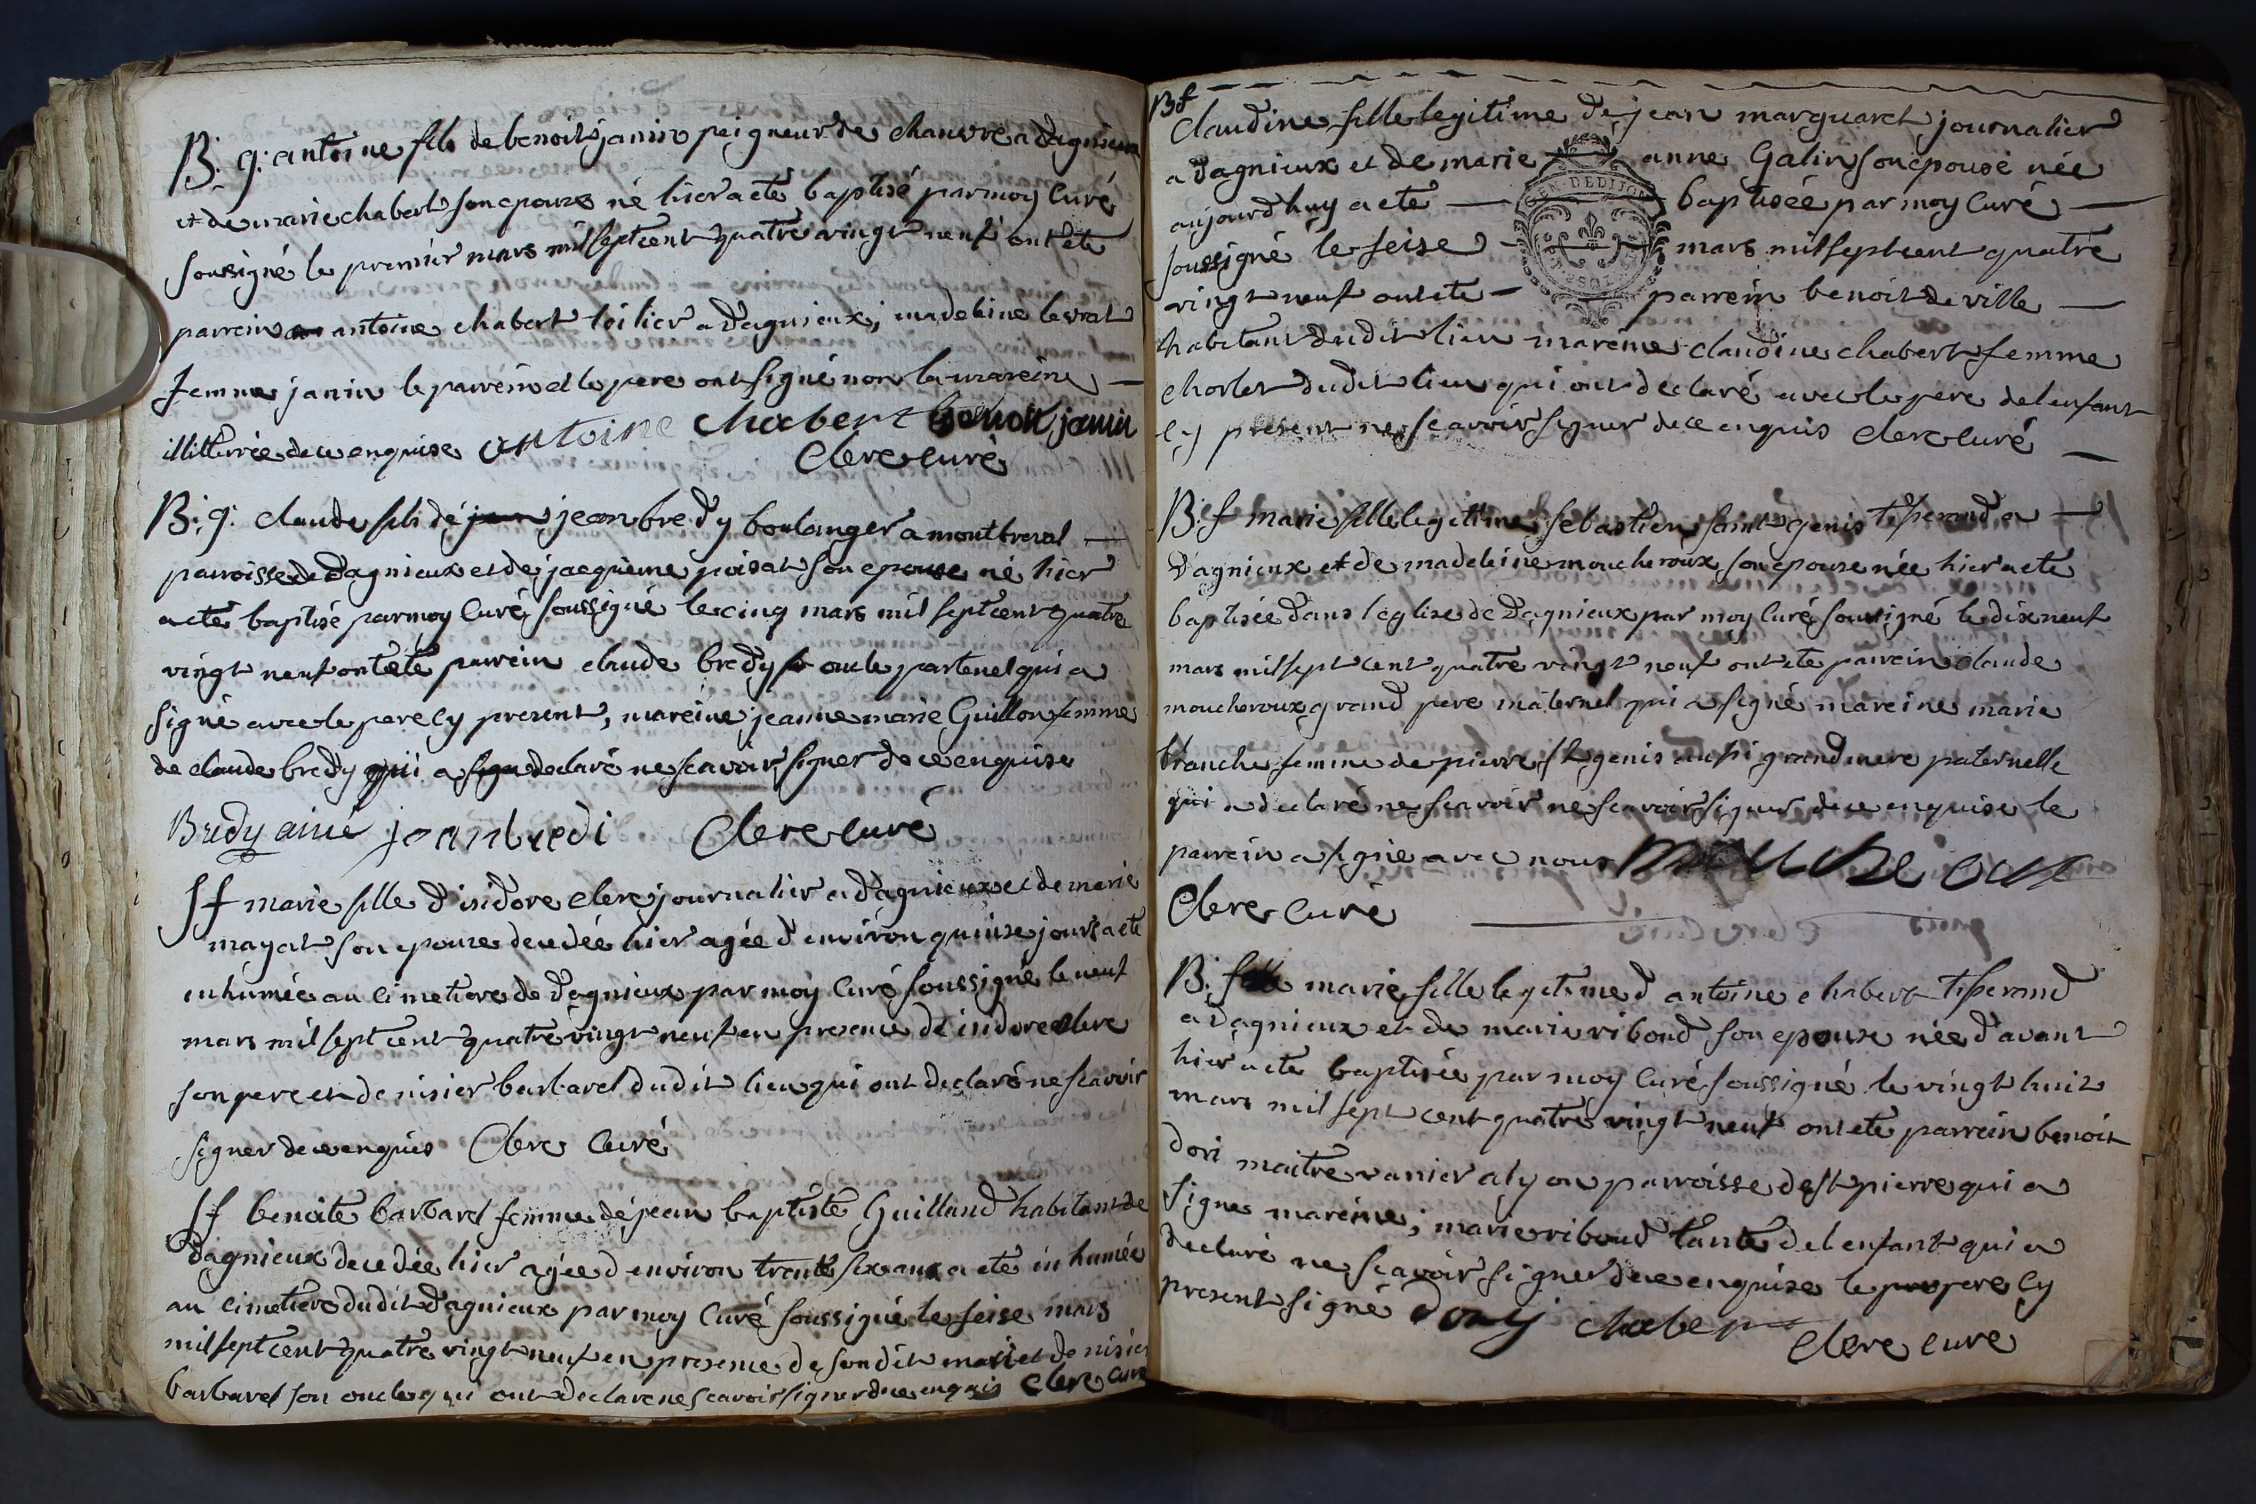 B: g: antoine fils de benoit janin peigneur de chanvre a dagnieux
et de marie chabert son epouse né hier a eté baptisé par moy Curé
soussigné le premier mars mil sept cent quatre vingt neuf ont été
parrein antoine chabert toilier a dagnieux, madeleine levrat
femme janin le parrein et le pere ont signé non la mareine —
illitterée de ce enquise antoine chabert benoit janin
Clerc curé
B: g: claude fils de jean jean bredy boulanger a montbreval —
parroisse de Dagnieux et de jacqueme poisat son epouse né hier
a eté baptisé par moy Curé soussigné le cinq mars mil sept cent quatre
vingt neuf ont eté parrein claude bredy oncle paternel qui a
signé avec le pere cy present, mareine jeanne marie Guillon femme
de claude bredy qui a declaré ne scavoir signer de ce enquise
Bredy ainé jean bredi Clerc curé
Sf marie fille d'isidore clerc journalier a dagnieux et de marie
mayat son epouse decedée hier agée d'environ quinze jours a eté
inhumée au cimetiere de dagnieux par moy Curé soussigné le neuf
mars mil sept cent quatre vingt neuf en presence de isidore clerc
son pere et de nisier barbaret dudit lieu qui ont declaré ne scavoir
signer de ce enquis Clerc Curé
Sf benoite barbaret femme de jean baptiste Guilland habitant de
Dagnieux decedée hier agée d'environ trente six ans a eté inhumée
au cimetiere dudit dagnieux par moy Curé soussigné le seise mars
mil sept cent quatre vingt neuf en presence de son dit mari et de nisier
barbaret son oncle qui ont declaré ne scavoir signer de ce enquis Clerc curé
Bf
Claudine fille legitime de jean marguaret journalier
a dagnieux et de marie — anne Galin son epouse née
aujourd'huy a eté — baptisée par moy Curé —
soussigné le seise — mars mil sept cent quatre
GEN. DE DIJON
vingt neuf ont ete — parrein benoit de ville —
habitant dudit lieu mareine claudine chabert femme
dudit lieu qui ont declaré avec le pere de l'enfant
cy present ne scavoir signer de ce enquis Clerc curé —
B: f marie fille legitime sebastien saint genis tisserand a —
dagnieux et de madeleine moucheroux son epouse née hier a eté
baptisée dans l'eglise de Dagnieux par moy Curé soussigné le dix neuf
mars mil sept cent quatre vingt neuf ont eté parrein claude
moucheroux grand pere maternel qui a signé mareine marie
branche femme de pierre St genis aussi grand mere paternelle
qui a declaré ne scavoir ne scavoir signer de ce enquise le
parrein a signé avec nous
Clerc Curé
B: f marie fille legitime d'antoine chabert tisserand
a dagnieux et de marie riboud son epouse née d'avant
hier a eté baptisée par moy Curé soussigné le vingt huit
mars mil sept cent quatre vingt neuf ont eté parrein benoit
dori maitre vanier a lyon parroisse de St pierre qui a
signé mareine, marie riboud tante de l'enfant qui a
declaré ne scavoir signer de ce enquise le pere cy
present signé dory chabert Clerc curé